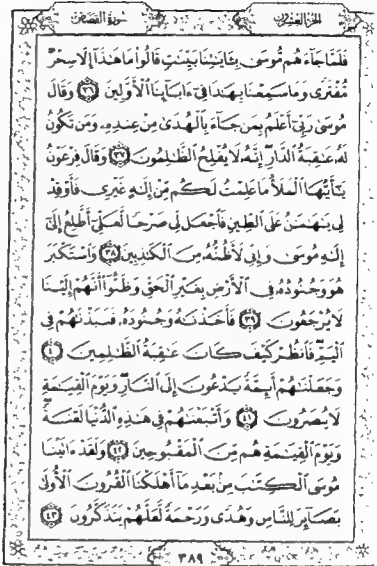 سورة القصص
الجزء العشرون
فَلَمَّا جَآءَهُم مُّوسَىٰ بِـَٔايَـٰتِنَا بَيِّنَـٰتٍ قَالُوا۟ مَا هَـٰذَآ إِلَّا سِحْرٌ
مُّفْتَرًى وَمَا سَمِعْنَا بِهَـٰذَا فِىٓ ءَابَآئِنَا ٱلْأَوَّلِينَ ٣٦ وَقَالَ
مُوسَىٰ رَبِّىٓ أَعْلَمُ بِمَن جَآءَ بِٱلْهُدَىٰ مِنْ عِندِهِۦ وَمَن تَكُونُ
لَهُۥ عَـٰقِبَةُ ٱلدَّارِ إِنَّهُۥ لَا يُفْلِحُ ٱلظَّـٰلِمُونَ ٣٧ وَقَالَ فِرْعَوْنُ
يَـٰٓأَيُّهَا ٱلْمَلَأُ مَا عَلِمْتُ لَكُم مِّنْ إِلَـٰهٍ غَيْرِى فَأَوْقِدْ
لِى يَـٰهَـٰمَـٰنُ عَلَى ٱلطِّينِ فَٱجْعَل لِّى صَرْحًا لَّعَلِّىٓ أَطَّلِعُ إِلَىٰٓ
إِلَـٰهِ مُوسَىٰ وَإِنِّى لَأَظُنُّهُۥ مِنَ ٱلْكَـٰذِبِينَ ٣٨ وَٱسْتَكْبَرَ
هُوَ وَجُنُودُهُۥ فِى ٱلْأَرْضِ بِغَيْرِ ٱلْحَقِّ وَظَنُّوٓا۟ أَنَّهُمْ إِلَيْنَا
لَا يُرْجَعُونَ ٣٩ فَأَخَذْنَـٰهُ وَجُنُودَهُۥ فَنَبَذْنَـٰهُمْ فِى
ٱلْيَمِّ فَٱنظُرْ كَيْفَ كَانَ عَـٰقِبَةُ ٱلظَّـٰلِمِينَ ٤٠
وَجَعَلْنَـٰهُمْ أَئِمَّةً يَدْعُونَ إِلَى ٱلنَّارِ وَيَوْمَ ٱلْقِيَـٰمَةِ
لَا يُنصَرُونَ ٤١ وَأَتْبَعْنَـٰهُمْ فِى هَـٰذِهِ ٱلدُّنْيَا لَعْنَةً
وَيَوْمَ ٱلْقِيَـٰمَةِ هُم مِّنَ ٱلْمَقْبُوحِينَ ٤٢ وَلَقَدْ ءَاتَيْنَا
مُوسَى ٱلْكِتَـٰبَ مِنۢ بَعْدِ مَآ أَهْلَكْنَا ٱلْقُرُونَ ٱلْأُولَىٰ
بَصَآئِرَ لِلنَّاسِ وَهُدًى وَرَحْمَةً لَّعَلَّهُمْ يَتَذَكَّرُونَ ٤٣
٣٨٩